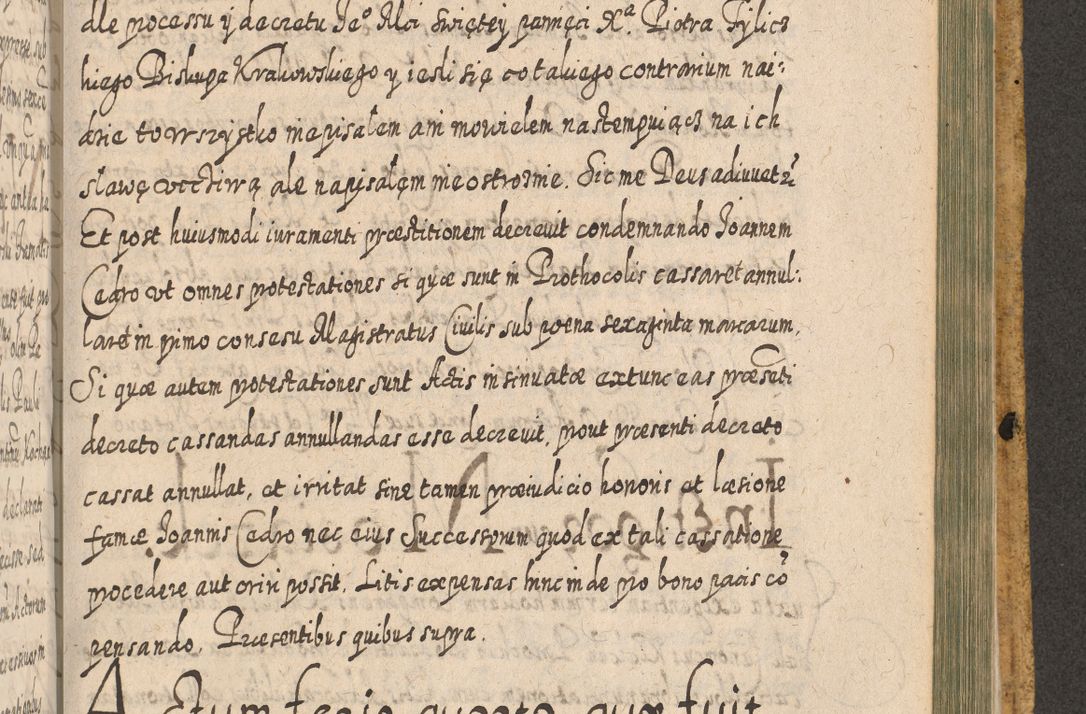 dle processu y decretu Je⁰ Mci Swiętey pamięci Xᵃ. Piotra Tylics
kiego Biskupa Krakowskiego y iesli się co takiego contrarium nai:
dzie to wszystko nie pisałem ani mowielem nastempuiącz na ich
sławę ucztiwą ale napisałem nieostroznie. Sic me Deus adiuvet &
Et post huiusmodi iuramenti præstitionem decreuit condemnando Joannem
Cedro ut omnes protestationes si quæ sunt in Prothocolis cassaret annul:
laret in primo consesu Magistratus Ciuilis sub poena sexaginta marcarum,
Si quæ autem protestationes sunt Actis insinuatæ extunc eas præsēti
decreto cassandas annullandas esse decreuit, prout præsenti decreto
cassat annullat, et irritat sine tamen præiudicio honoris et læsione
famæ Joannis Cedro nec eius Successorum quod ex tali cassatione
procedere aut oriri possit. Litis expensas hinc inde pro bono pacis cō
pensando. Præsentibus quibus supra.
Actum feria quarta quæ fuit